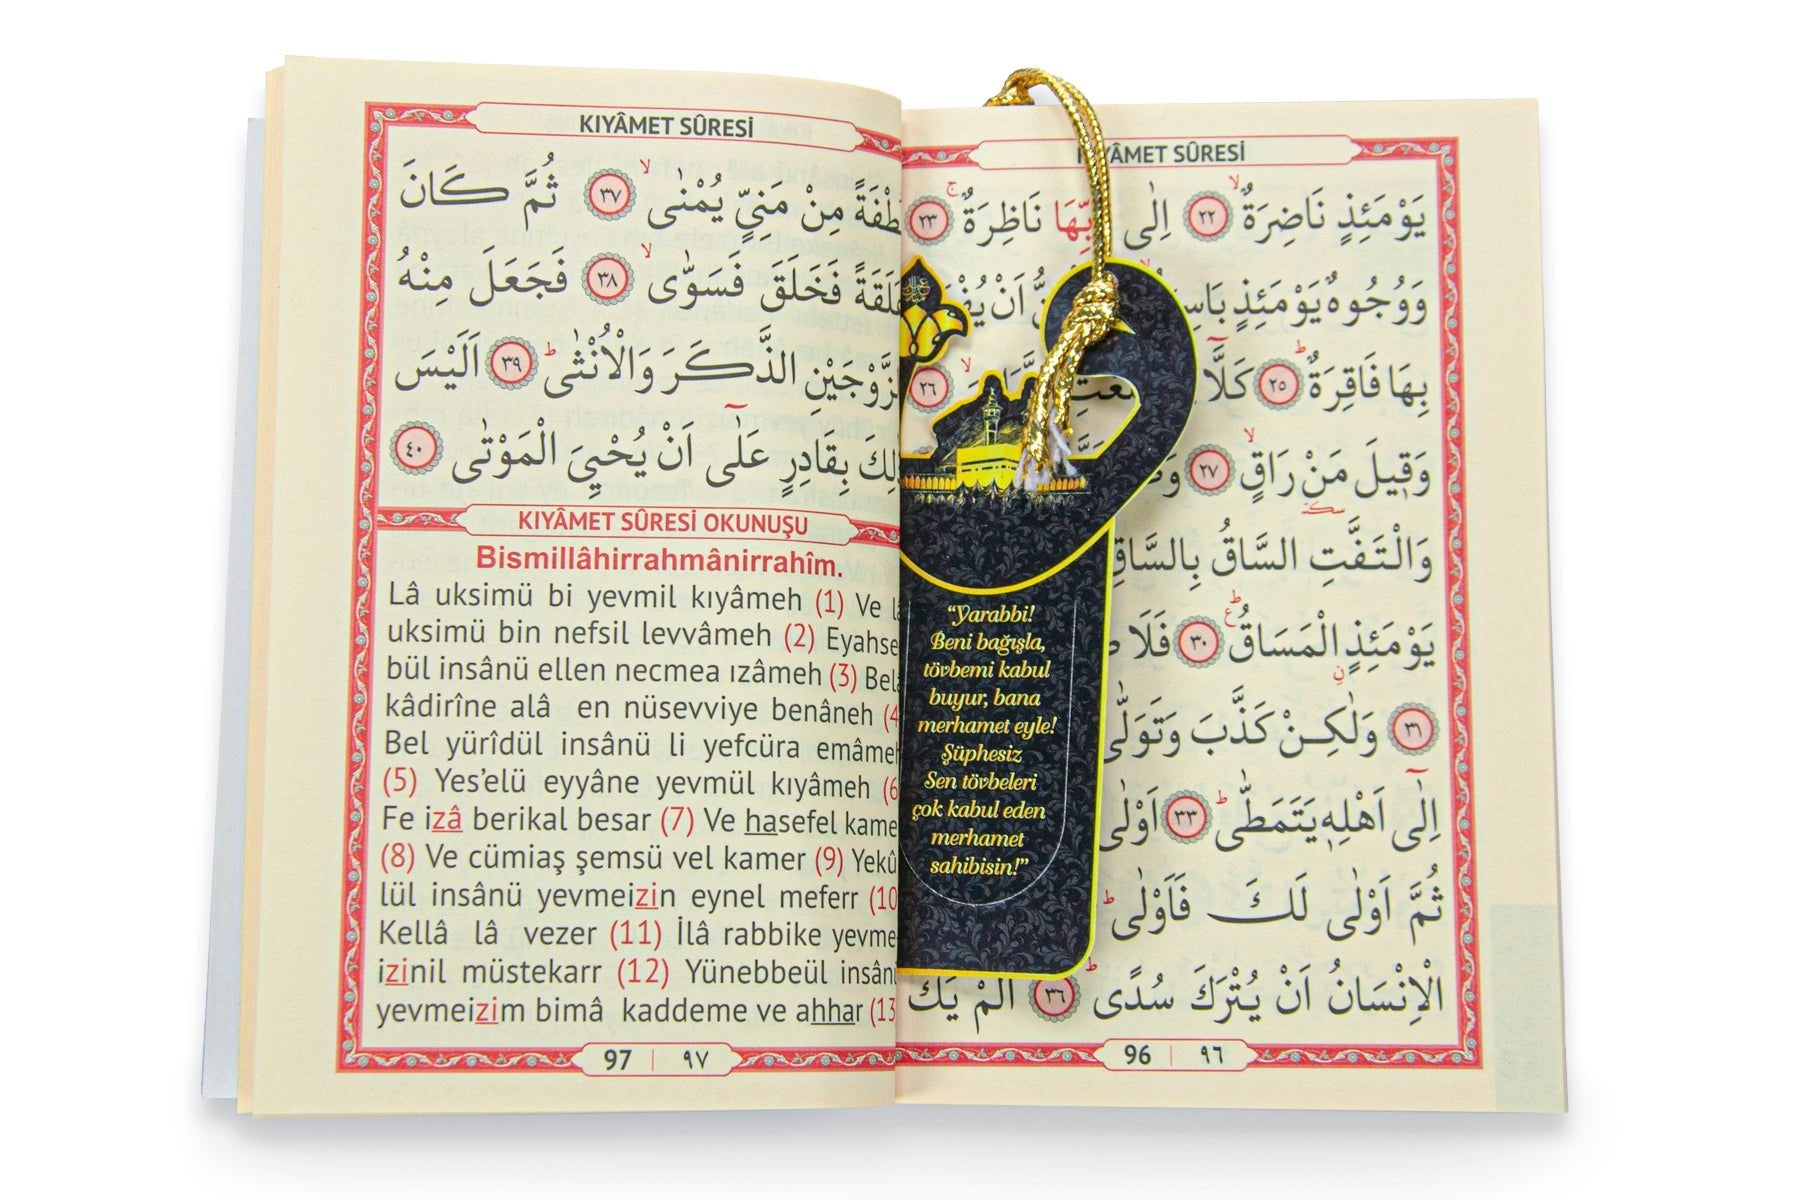 KIYÂMET SÛRESİ
يَوْمَئِذٍ نَاضِرَةٌۙ ﴿٢٢﴾ اِلٰى رَبِّهَا نَاظِرَةٌۚ ﴿٢٣﴾
وَوُجُوهٌ يَوْمَئِذٍ بَاسِ اَنْ يُفْ
بِهَا فَاقِرَةٌۜ ﴿٢٥﴾ كَلَّٓا ﴿٢٦﴾
وَق۪يلَ مَنْ رَاقٍۙ ﴿٢٧﴾
وَالْتَفَّتِ السَّاقُ بِالسَّاقِ
يَوْمَئِذٍ الْمَسَاقُۜ ﴿٣٠﴾ فَلَا
﴿٣١﴾ وَلٰكِنْ كَذَّبَ وَتَوَلّٰى
اِلٰٓى اَهْلِه۪ يَتَمَطّٰىۜ ﴿٣٣﴾ اَوْلٰى
ثُمَّ اَوْلٰى لَكَ فَاَوْلٰىۜ
الْاِنْسَانُ اَنْ يُتْرَكَ سُدًىۜ ﴿٣٦﴾ اَلَمْ يَكُ
96 | ٩٦
“Yarabbi!
Beni bağışla,
tövbemi kabul
buyur, bana
merhamet eyle!
Şüphesiz
Sen tövbeleri
çok kabul eden
merhamet
sahibisin!”
KIYÂMET SÛRESİ
نُطْفَةً مِنْ مَنِيٍّ يُمْنٰىۙ ﴿٣٧﴾ ثُمَّ كَانَ
عَلَقَةً فَخَلَقَ فَسَوّٰىۙ ﴿٣٨﴾ فَجَعَلَ مِنْهُ
الزَّوْجَيْنِ الذَّكَرَ وَالْاُنْثٰىۜ ﴿٣٩﴾ اَلَيْسَ
ذٰلِكَ بِقَادِرٍ عَلٰٓى اَنْ يُحْيِيَ الْمَوْتٰى ﴿٤٠﴾
KIYÂMET SÛRESİ OKUNUŞU
Bismillâhirrahmânirrahîm.
Lâ uksimü bi yevmil kıyâmeh (1) Ve lâ
uksimü bin nefsil levvâmeh (2) Eyahse
bül insânü ellen necmea ızâmeh (3) Belâ
kâdirîne alâ en nüsevviye benâneh (4
Bel yürîdül insânü li yefcüra emâmeh
(5) Yes’elü eyyâne yevmül kıyâmeh (6
Fe izâ berikal besar (7) Ve hasefel kame
(8) Ve cümiaş şemsü vel kamer (9) Yekû
lül insânü yevmeizin eynel meferr (10
Kellâ lâ vezer (11) İlâ rabbike yevme-
izinil müstekarr (12) Yünebbeül insânü
yevmeizim bimâ kaddeme ve ahhar (13
97 | ٩٧